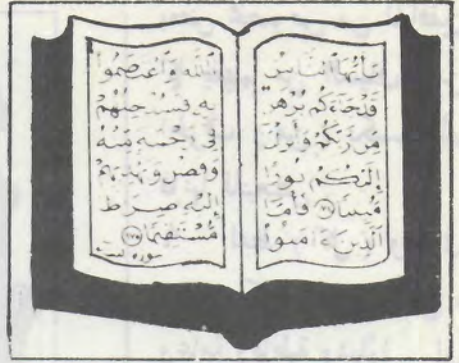 يَا أَيُّهَا النَّاسُ
قَدْ جَاءَكُم بُرْهَٰنٌ
مِّن رَّبِّكُمْ وَأَنزَلْنَا
إِلَيْكُمْ نُورًا
مُّبِينًا (١٧٤) فَأَمَّا
الَّذِينَ ءَامَنُوا
بِاللَّهِ وَاعْتَصَمُوا
بِهِ فَسَيُدْخِلُهُمْ
فِي رَحْمَةٍ مِّنْهُ
وَفَضْلٍ وَيَهْدِيهِمْ
إِلَيْهِ صِرَٰطًا
مُّسْتَقِيمًا (١٧٥)
سورة النساء